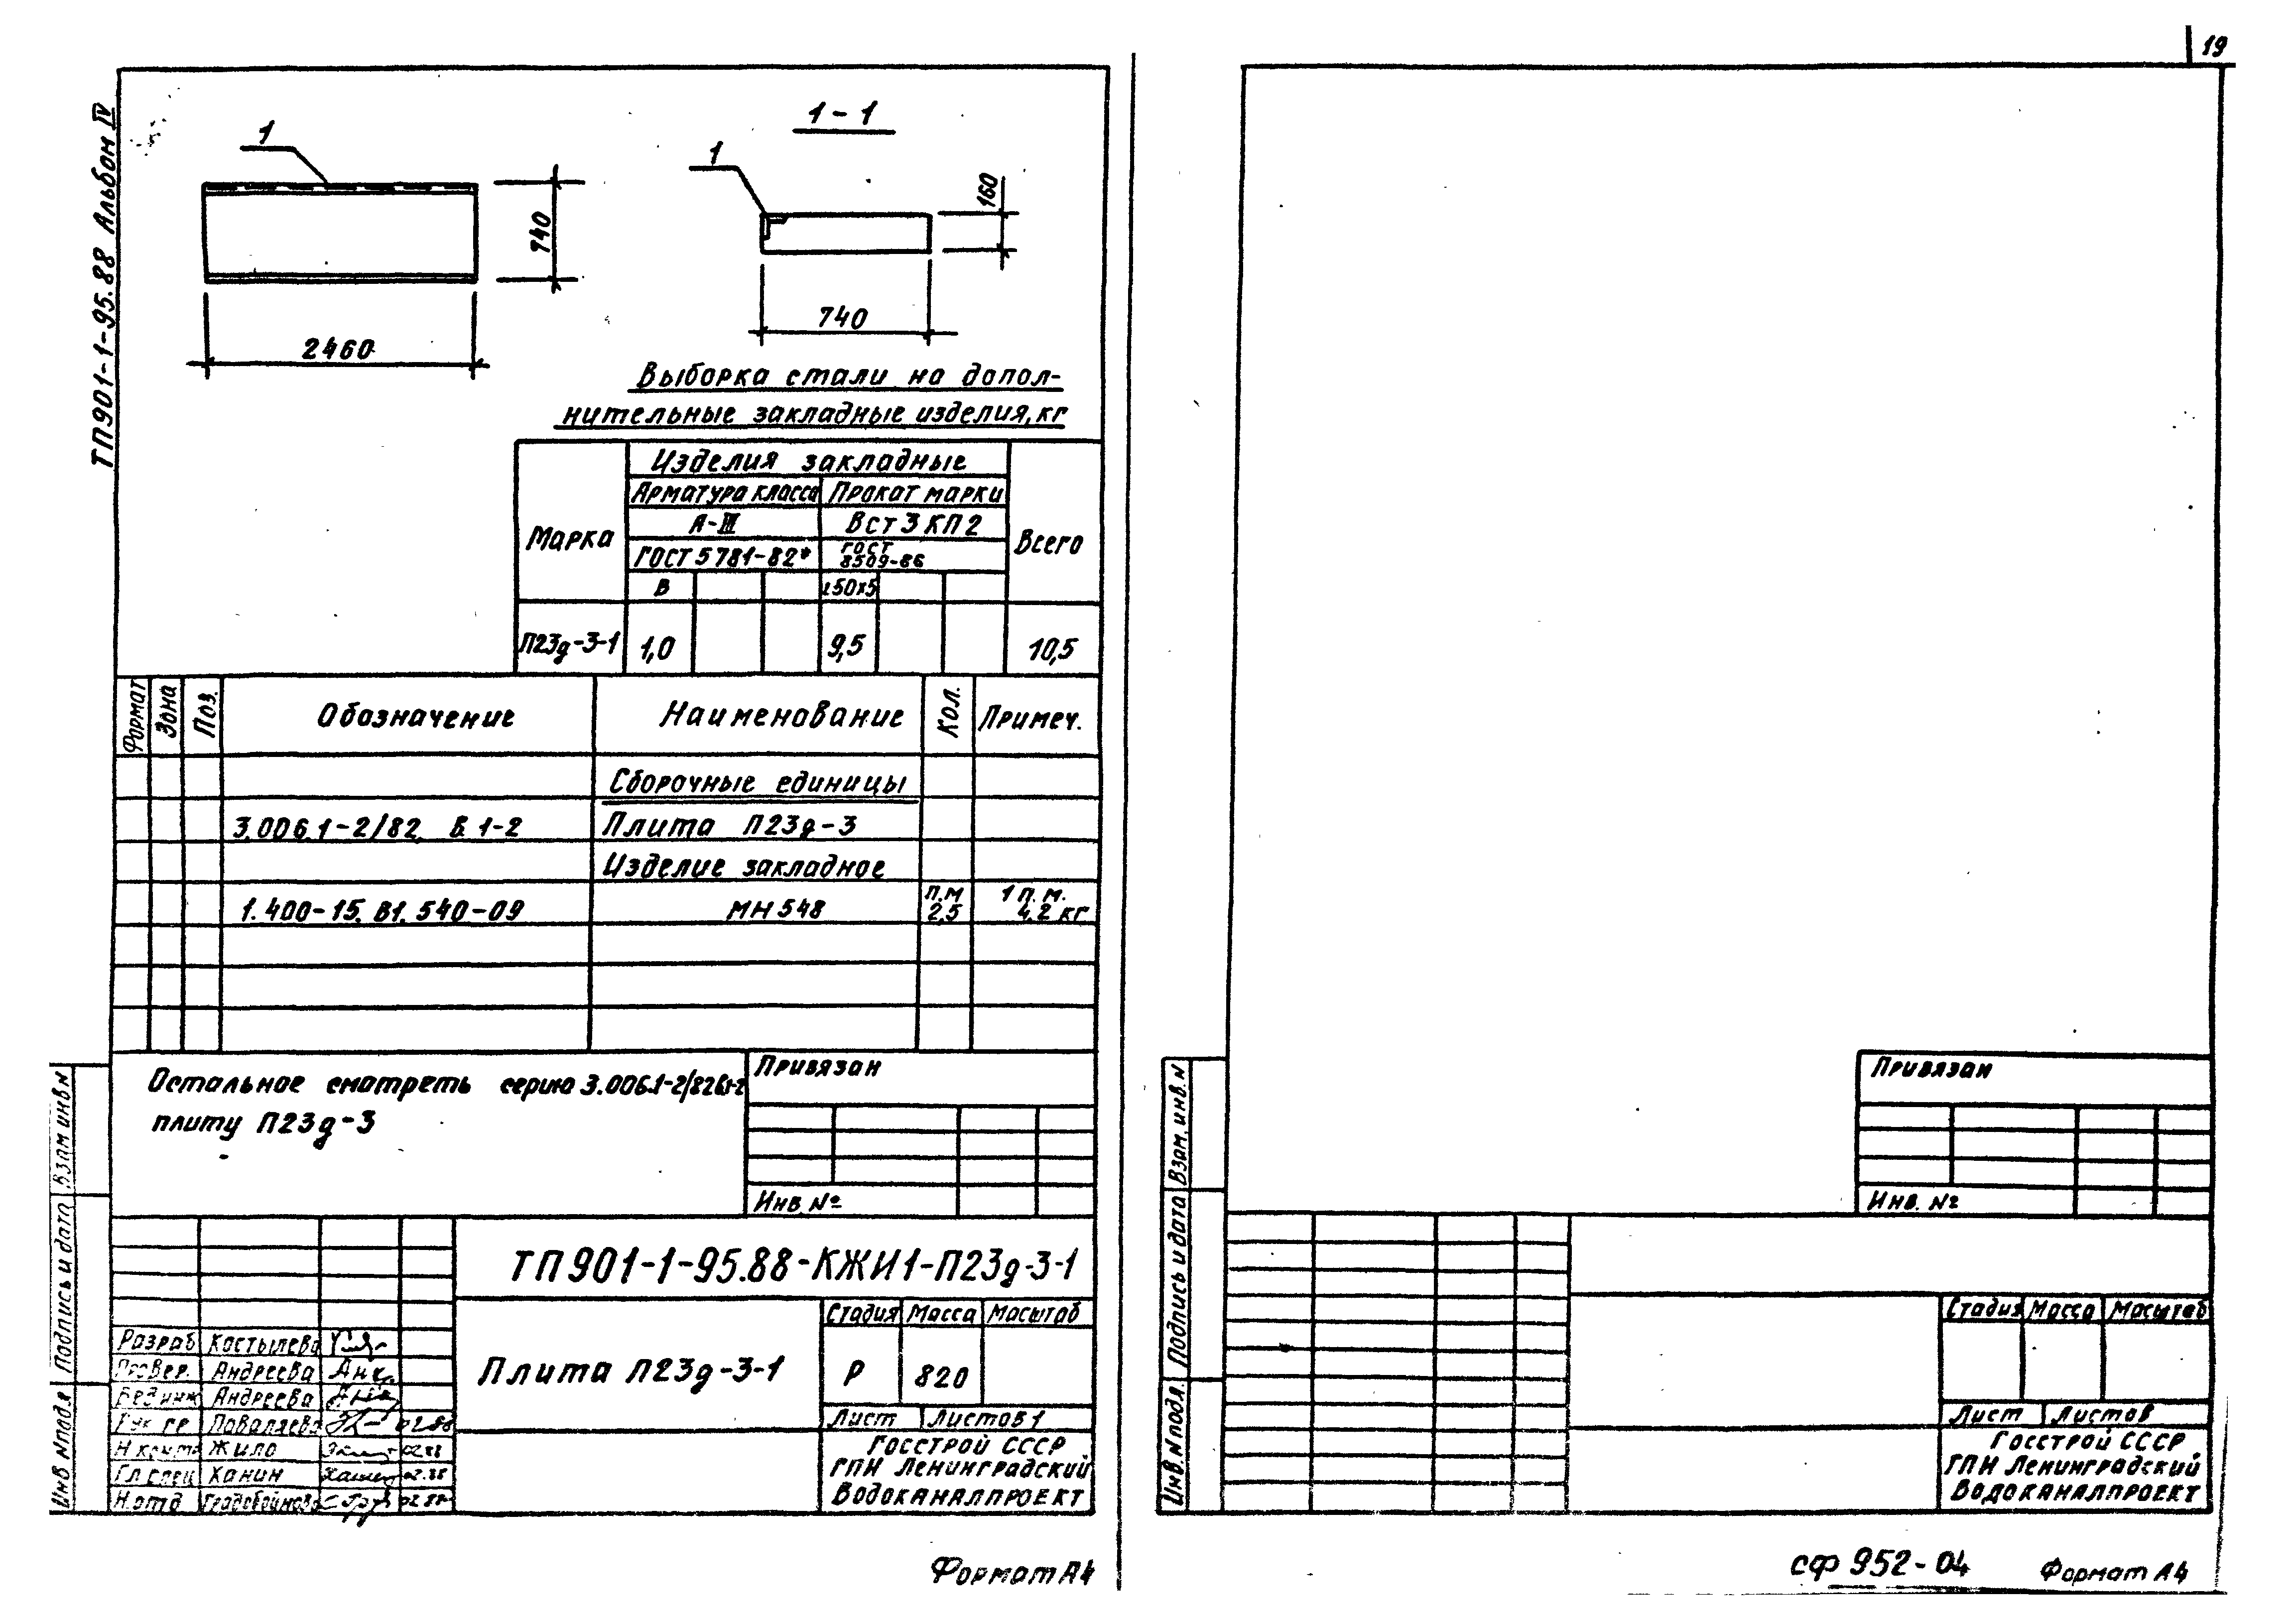 19
ТП901-1-95.88 Альбом IV
1
740
2460
1-1
1
160
740
Выборка стали на допол-
нительные закладные изделия, кг
Марка
Изделия закладные
Всего
Арматура класса
Прокат марки
А-III
Вст 3 КП 2
ГОСТ 5781-82*
ГОСТ 8509-86
8
L50x5
П23д-3-1
1,0
9,5
10,5
Формат
Зона
Поз.
Обозначение
Наименование
Кол.
Примеч.
Сборочные единицы
3.006.1-2/82 В.1-2
Плита П23д-3
Изделие закладное
1.400-15. В1. 540-09
МН 548
п.м 2,5
1 п.м. 4,2 кг
Остальное смотреть серию 3.006.1-2/82В1-2
плиту П23д-3
Привязан
Инв. №
ТП901-1-95.88-КЖИ1-П23д-3-1
Плита П23д-3-1
Стадия
Масса
Масштаб
Р
820
Лист
Листов 1
Госстрой СССР
ГПИ Ленинградский
Водоканалпроект
Разраб
Костылева
Провер.
Андреева
Вед инж
Андреева
Рук гр
Поваляева
02.88
Н контр
Жило
02.88
Гл спец
Ханин
02.88
Н.отд
Градобойнова
02.88
Взам инв N
Подпись и дата
Инв N подл
Формат А4
Привязан
Инв. №
Взам. инв. N
Подпись и дата
Инв. N подл.
Стадия
Масса
Масштаб
Лист
Листов
Госстрой СССР
ГПИ Ленинградский
Водоканалпроект
сф 952-04
Формат А4